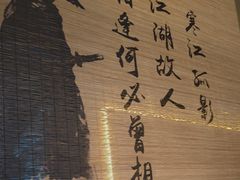 寒江孤影
江湖故人
逢何必曾相